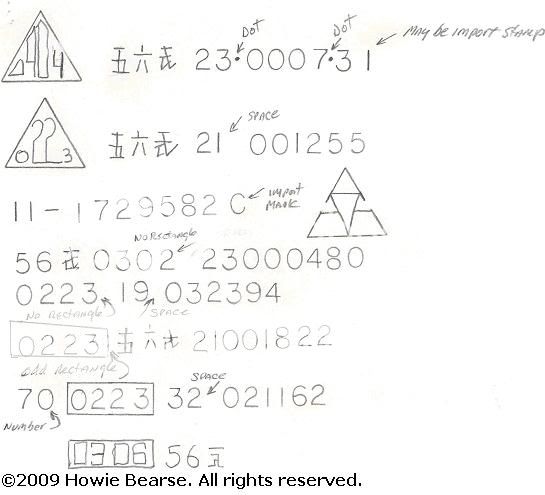 Dot Dot May be import stamp
五六式 23·0007·31
SPACE
0 3 五六式 21 001255
11-1729582 C import mark
No Rectangle
56式 0302 23000480
0223 19 032394
No Rectangle SPACE
0223 五六式 21001822
odd Rectangle SPACE
70 0223 32 021162
Number
0306 56式
©2009 Howie Bearse. All rights reserved.